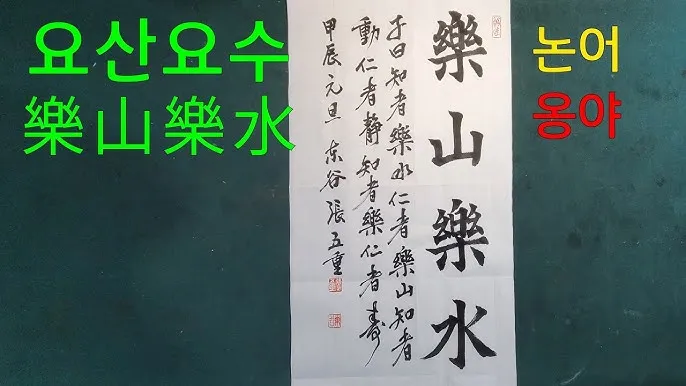 요산요수
樂山樂水
논어
옹야
樂山樂水
子曰知者樂水仁者樂山知者
動仁者静知者樂仁者壽
甲辰元旦 东谷 張五重